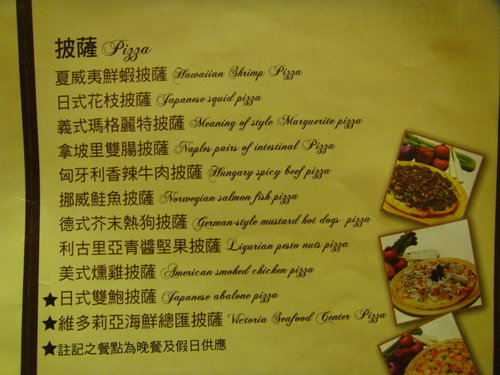 披薩 Pizza
夏威夷鮮蝦披薩 Hawaiian Shrimp Pizza
日式花枝披薩 Japanese squid pizza
義式瑪格麗特披薩 Meaning of style Marguerite pizza
拿坡里雙腸披薩 Naples pairs of intestinal Pizza
匈牙利香辣牛肉披薩 Hungary spicy beef pizza
挪威鮭魚披薩 Norwegian salmon fish pizza
德式芥末熱狗披薩 German-style mustard hot dogs pizza
利古里亞青醬堅果披薩 Ligurian pesto nuts pizza
美式燻雞披薩 American smoked chicken pizza
★日式雙鮑披薩 Japanese abalone pizza
★維多莉亞海鮮總匯披薩 Victoria Seafood Center Pizza
★註記之餐點為晚餐及假日供應